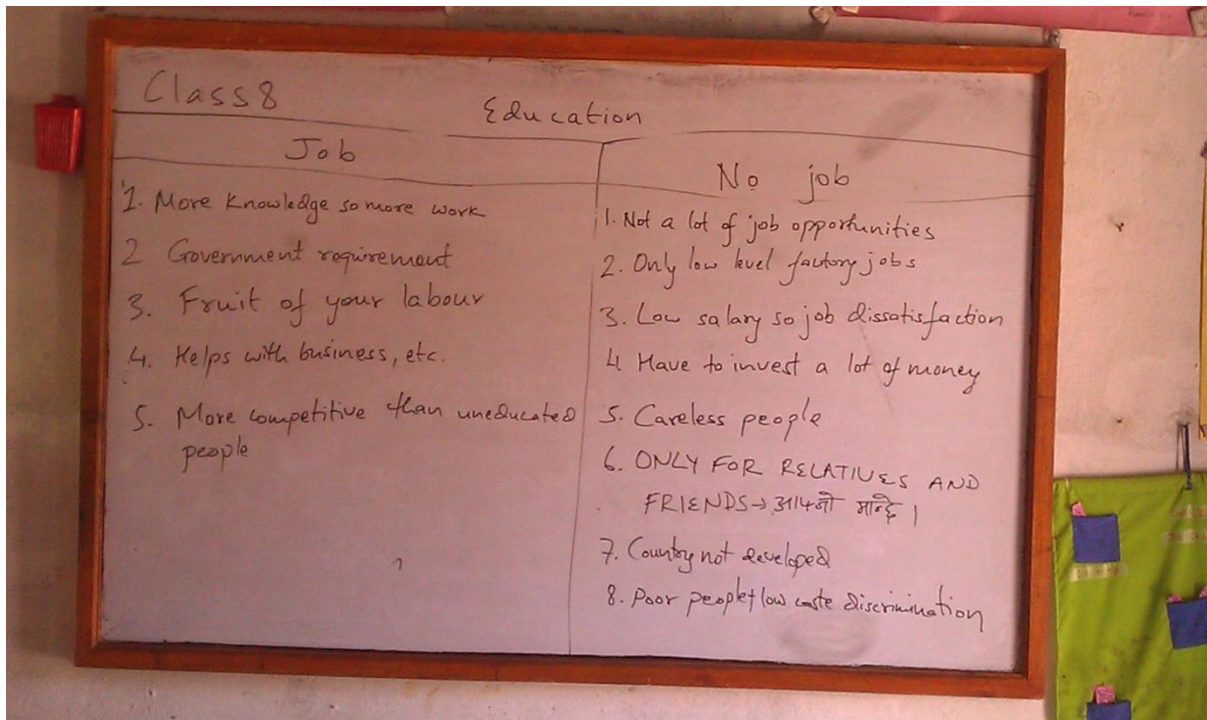 Class 8
Education
Job
1. More knowledge so more work
2 Government requirement
3. Fruit of your labour
4. Helps with business, etc.
5. More competitive than uneducated
people
No job
1. Not a lot of job opportunities
2. Only low level factory jobs
3. Low salary so job dissatisfaction
4. Have to invest a lot of money
5. Careless people
6. ONLY FOR RELATIVES AND
FRIENDS → आफ्नो मान्छे।
7. Country not developed
8. Poor people + low caste discrimination